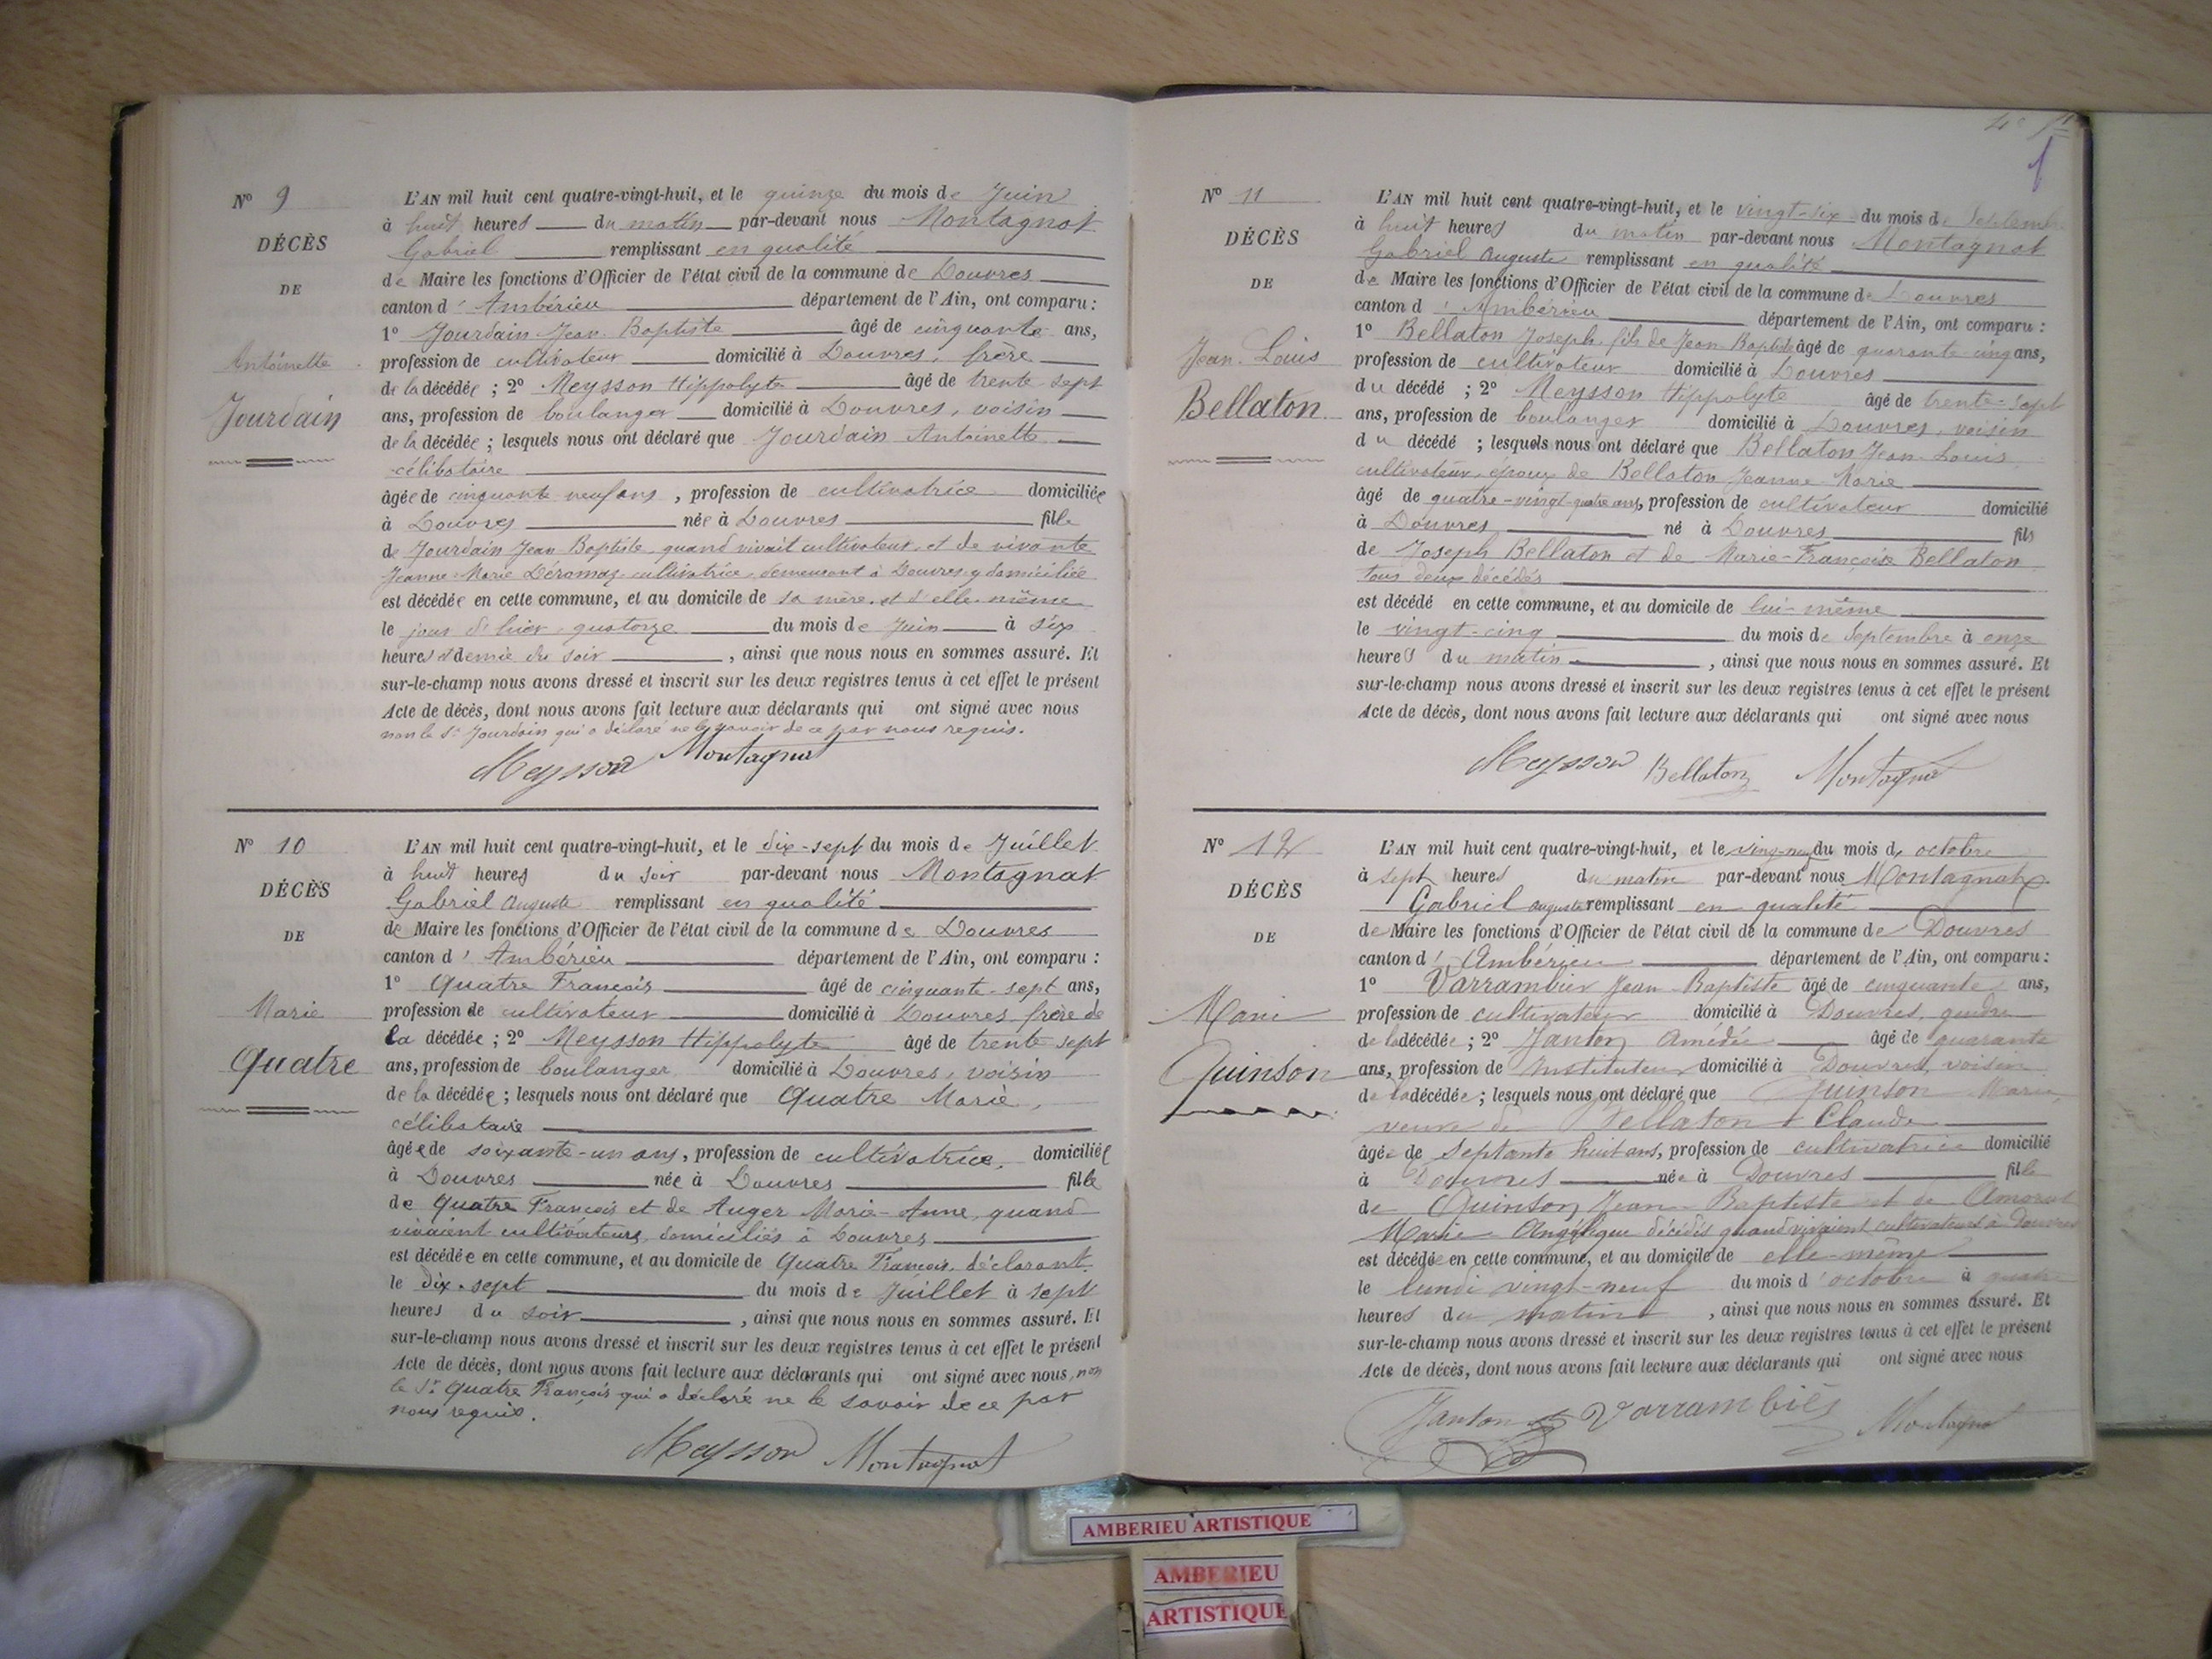 N° 9
DÉCÈS
DE
Antoinette
Jourdain
L'AN mil huit cent quatre-vingt-huit, et le quinze du mois de Juin
à huit heures du matin par-devant nous Montagnat
Gabriel remplissant en qualité
de Maire les fonctions d'Officier de l'état civil de la commune de Douvres
canton d'Ambérieu département de l'Ain, ont comparu :
1° Jourdain Jean Baptiste âgé de cinquante ans,
profession de cultivateur domicilié à Douvres, frère
de la décédée ; 2° Meysson Hippolyte âgé de trente-sept
ans, profession de boulanger domicilié à Douvres, voisin
de la décédée ; lesquels nous ont déclaré que Jourdain Antoinette
célibataire
âgée de cinquante neuf ans, profession de cultivatrice domiciliée
à Douvres née à Douvres fille
de Jourdain Jean Baptiste, quand vivait cultivateur, et de vivante
Jeanne-Marie Déromaz cultivatrice, demeurant à Douvres y domiciliée
est décédée en cette commune, et au domicile de sa mère et d'elle-même
le jour d'hier, quatorze du mois de Juin à six
heures et demie du soir, ainsi que nous nous en sommes assuré. Et
sur-le-champ nous avons dressé et inscrit sur les deux registres tenus à cet effet le présent
Acte de décès, dont nous avons fait lecture aux déclarants qui ont signé avec nous
non le Sr Jourdain qui a déclaré ne le savoir de ce par nous requis.
Meysson Montagnat
N° 10
DÉCÈS
DE
Marie
Quatre
L'AN mil huit cent quatre-vingt-huit, et le dix-sept du mois de Juillet
à huit heures du soir par-devant nous Montagnat
Gabriel Auguste remplissant en qualité
de Maire les fonctions d'Officier de l'état civil de la commune de Douvres
canton d'Ambérieu département de l'Ain, ont comparu :
1° Quatre François âgé de cinquante-sept ans,
profession de cultivateur domicilié à Douvres frère de
la décédée ; 2° Meysson Hippolyte âgé de trente sept
ans, profession de boulanger domicilié à Douvres, voisin
de la décédée ; lesquels nous ont déclaré que Quatre Marie,
célibataire
âgée de soixante-un ans, profession de cultivatrice, domiciliée
à Douvres née à Douvres fille
de Quatre François et de Auger Marie-Anne, quand
vivaient cultivateurs, domiciliés à Douvres
est décédée en cette commune, et au domicile de Quatre François, déclarant.
le dix-sept du mois de Juillet à sept
heures du soir, ainsi que nous nous en sommes assuré. Et
sur-le-champ nous avons dressé et inscrit sur les deux registres tenus à cet effet le présent
Acte de décès, dont nous avons fait lecture aux déclarants qui ont signé avec nous, non
le Sr Quatre François qui a déclaré ne le savoir de ce par
nous requis.
Meysson Montagnat
N° 11
DÉCÈS
DE
Jean-Louis
Bellaton
L'AN mil huit cent quatre-vingt-huit, et le vingt-six du mois de Septembre
à huit heures du matin par-devant nous Montagnat
Gabriel Auguste remplissant en qualité
de Maire les fonctions d'Officier de l'état civil de la commune de Douvres
canton d'Ambérieu département de l'Ain, ont comparu :
1° Bellaton Joseph fils de Jean-Baptiste âgé de quarante-cinq ans,
profession de cultivateur domicilié à Douvres
du décédé ; 2° Meysson Hippolyte âgé de trente-sept
ans, profession de boulanger domicilié à Douvres, voisin
du décédé ; lesquels nous ont déclaré que Bellaton Jean-Louis
cultivateur, époux de Bellaton Jeanne-Marie
âgé de quatre-vingt-quatre ans, profession de cultivateur domicilié
à Douvres né à Douvres fils
de Joseph Bellaton et de Marie-Françoise Bellaton
tous deux décédés
est décédé en cette commune, et au domicile de lui-même
le vingt-cinq du mois de Septembre à onze
heures du matin, ainsi que nous nous en sommes assuré. Et
sur-le-champ nous avons dressé et inscrit sur les deux registres tenus à cet effet le présent
Acte de décès, dont nous avons fait lecture aux déclarants qui ont signé avec nous
Meysson Bellaton Montagnat
N° 12
DÉCÈS
DE
Marie
Quinson
L'AN mil huit cent quatre-vingt-huit, et le du mois d'octobre
à sept heures du matin par-devant nous Montagnat
Gabriel Auguste remplissant en qualité
de Maire les fonctions d'Officier de l'état civil de la commune de Douvres
canton d'Ambérieu département de l'Ain, ont comparu :
1° Varrambier Jean-Baptiste âgé de cinquante ans,
profession de cultivateur domicilié à Douvres, gendre
de la décédée ; 2° Janton Amédée âgé de quarante
ans, profession de Instituteur domicilié à Douvres, voisin
de la décédée ; lesquels nous ont déclaré que Quinson Marie,
veuve de Bellaton Claude
âgée de septante huit ans, profession de cultivatrice domicilié
à Douvres née à Douvres fille
de Quinson Jean-Baptiste et de
Marie-Angélique décédés quand vivaient cultivateurs à Douvres
est décédée en cette commune, et au domicile de elle-même
le lundi vingt-neuf du mois d'octobre à quatre
heures du matin, ainsi que nous nous en sommes assuré. Et
sur-le-champ nous avons dressé et inscrit sur les deux registres tenus à cet effet le présent
Acte de décès, dont nous avons fait lecture aux déclarants qui ont signé avec nous
Janton Varrambier Montagnat
AMBERIEU ARTISTIQUE
AMBERIEU
ARTISTIQUE